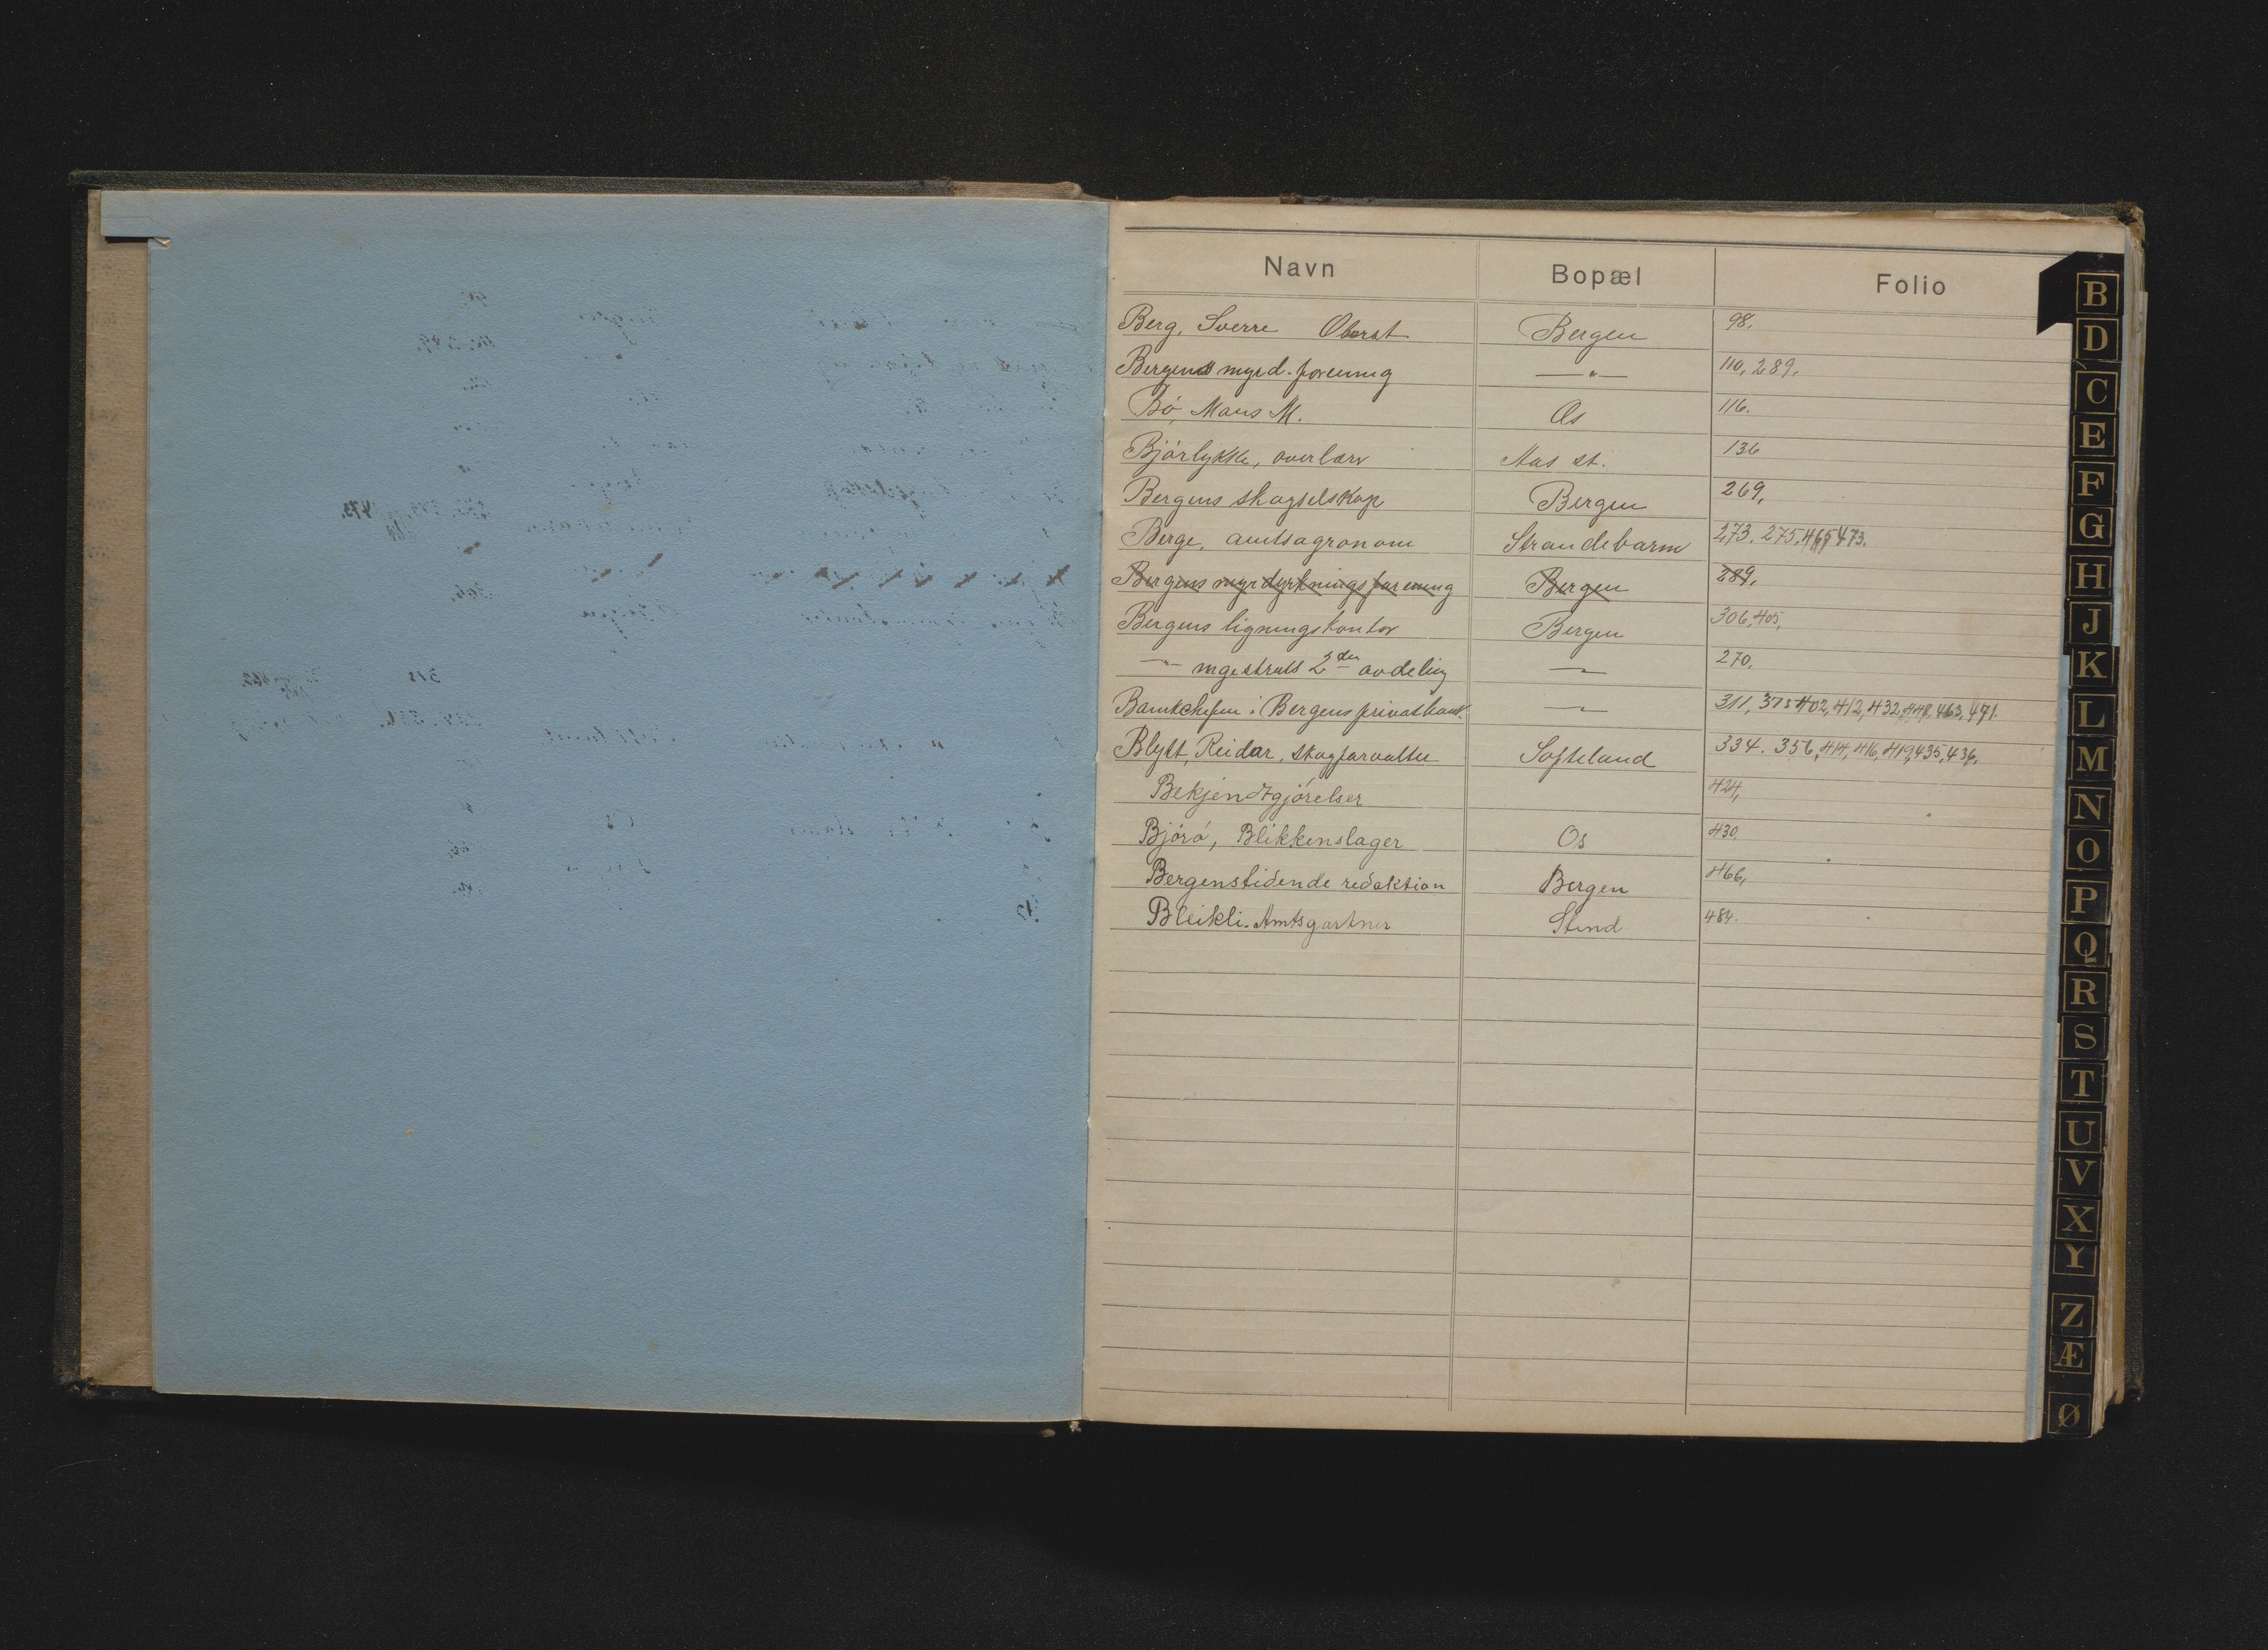 Navn Bopæl Folio
Berg, Sverre Oberst Bergen 98.
Bergens myrd. forening —"— 110, 289.
Bö, Mans M. Os 116.
Bjørlykke, overlærer Aas st. 136
Bergens skogselskap Bergen 269,
Berge, amtsagronom Strandebarm 273. 275, 465, 473.
Bergens myrdyrkningsforening Bergen 289.
Bergens ligningskontor Bergen 306, 405,
—"— magistrats 2den avdeling —"— 270.
Bankchefen i Bergens privatbank. —"— 311, 375 402, 412, 432, 448, 463, 471.
Blytt, Reidar, skogforvalter Søfteland 334. 356, 414, 416, 419, 435, 436.
Bekjendtgjørelser 424,
Bjóró, Blikkenslager Os 430,
Bergenstidende redaktion Bergen 466,
Bleikli. Amtsgartner Stend 484.
B
D
C
E
F
G
H
J
K
L
M
N
O
P
Q
R
S
T
U
V
X
Y
Z
Æ
Ø